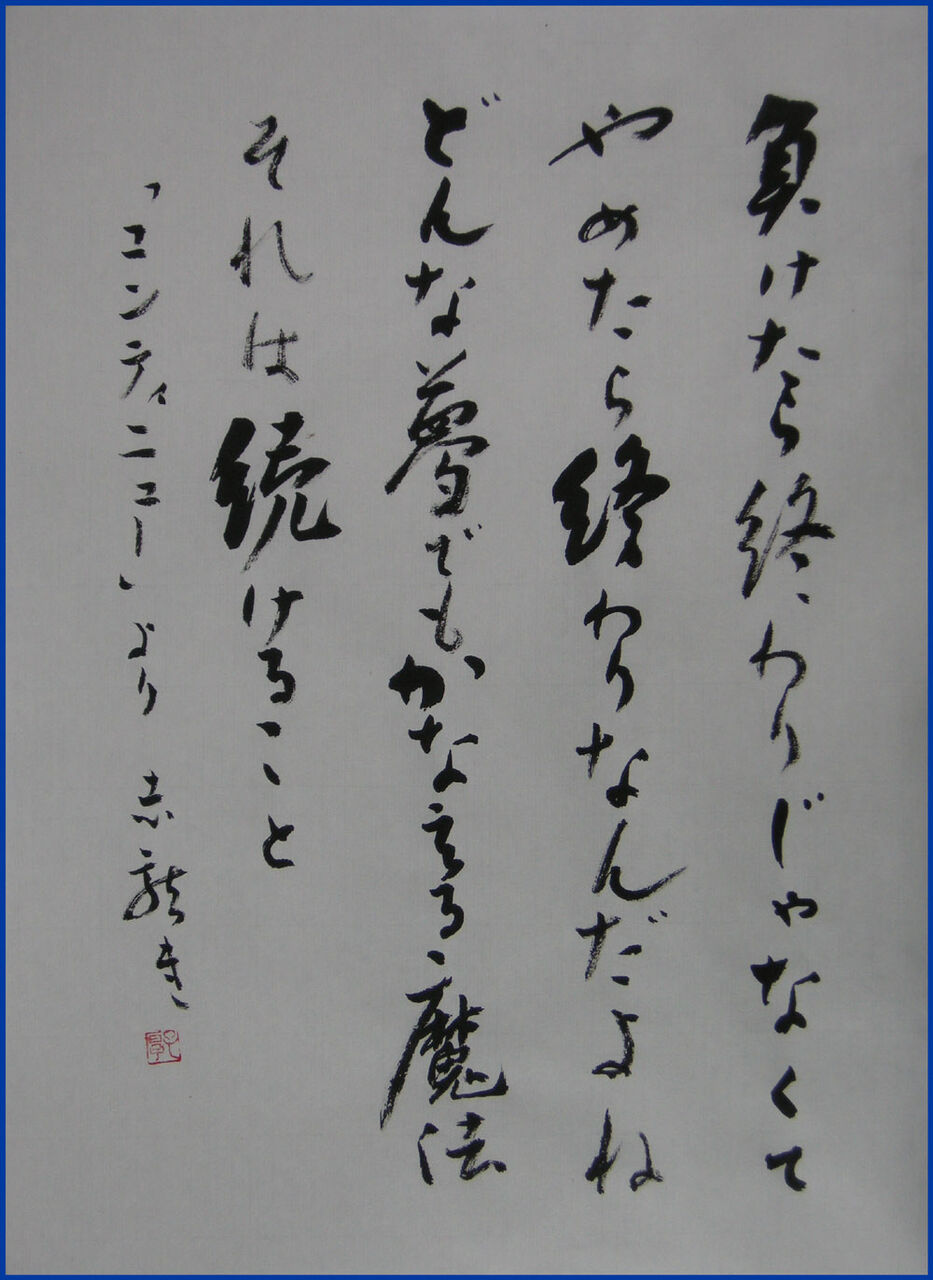 負けたら終わりじゃなくて
やめたら終わりなんだよね
どんな夢でもかなえる魔法
それは続けること
「コンティニュー」より 赤龍き